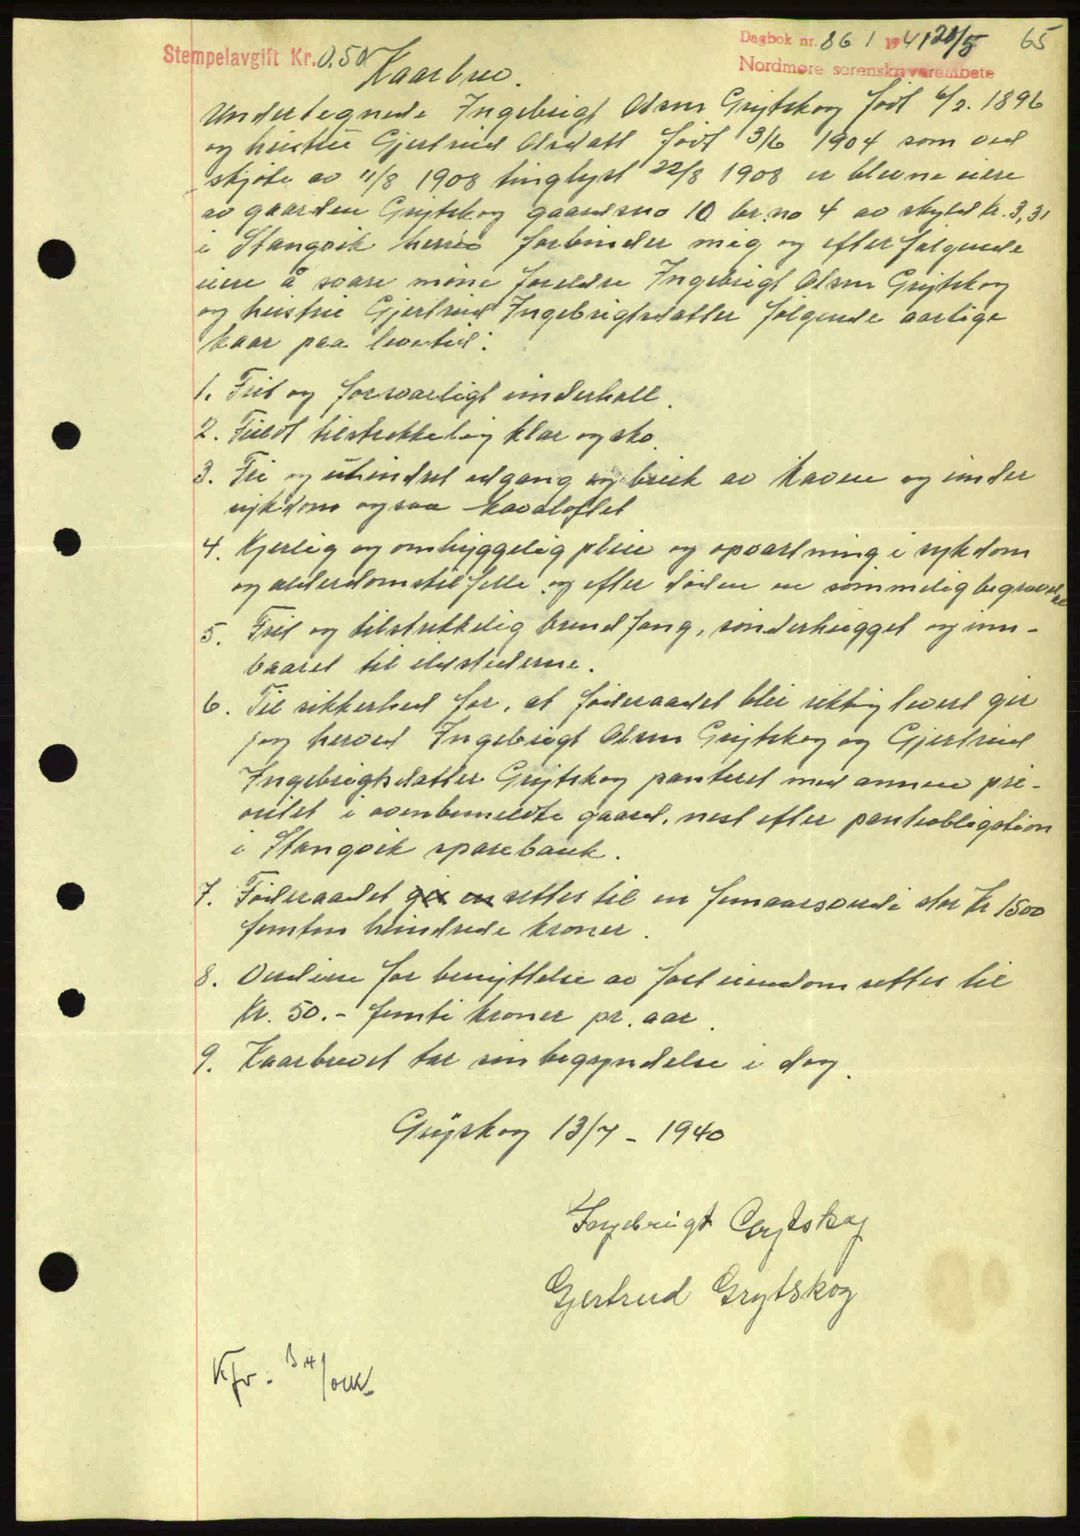 Stempelavgift Kr. 0.50
Dagbok nr. 861 1941 20/5 65
Nordmøre sorenskriverembete
Kaarbrev.
Undertegnede Ingebrigt Olsen Grytskog født 6/2. 1896
og hustru Gjertrud Olsdatt født 3/6 1904 som ved
skjöte av 11/8 1908 tinglyst 22/8 1908 er blevne eiere
av gaarden Grytskog gaardsno 10 br. no 4 av skyld kr. 3,31
i Stangvik herred forbinder mig og efterfølgende
eiere å svare mine foreldre Ingebrigt Olsen Grytskog
og hustru Gjertrud Ingebrigtsdatter følgende aarlige
kaar paa levetid:
1. Frit og forsvarligt underholl.
2. Fuldt tilstrekkelig klær og sko.
3. Fri og uhindret adgang og bruk av kaven og under
sykdom ogsaa kavaloftet
4. Kjerlig og omhyggelig pleie og opvartning i sykdom
og alderdomstilfelle og efter döden en sömmelig begravelse
5. Frit og tilstrekkelig brendfang, sönderhugget og inn-
baaret til ildstederne.
6. Til sikkerhed for, at föderaadet blir riktig levert gir
jeg herved Ingebrigt Olsen Grytskog og Gjertrud
Ingebrigtsdatter Grytskog panteret med annen pri-
oritet i ovenbemeldte gaard, nest efter pantobligation
i Stangvik sparebank.
7. Föderaadet gir en settes til en femaarsverdi stor Kr 1500
femten hundrede kroner.
8. Verdien for benyttelse av fast eiendom settes til
Kr. 50.- femti kroner pr. aar.
9. Kaarbrevet tar sin begyndelse i dag.
Grytskog 13/7 - 1940
Ingebrigt Grytskog
Gjertrud Grytskog
Kfr.: